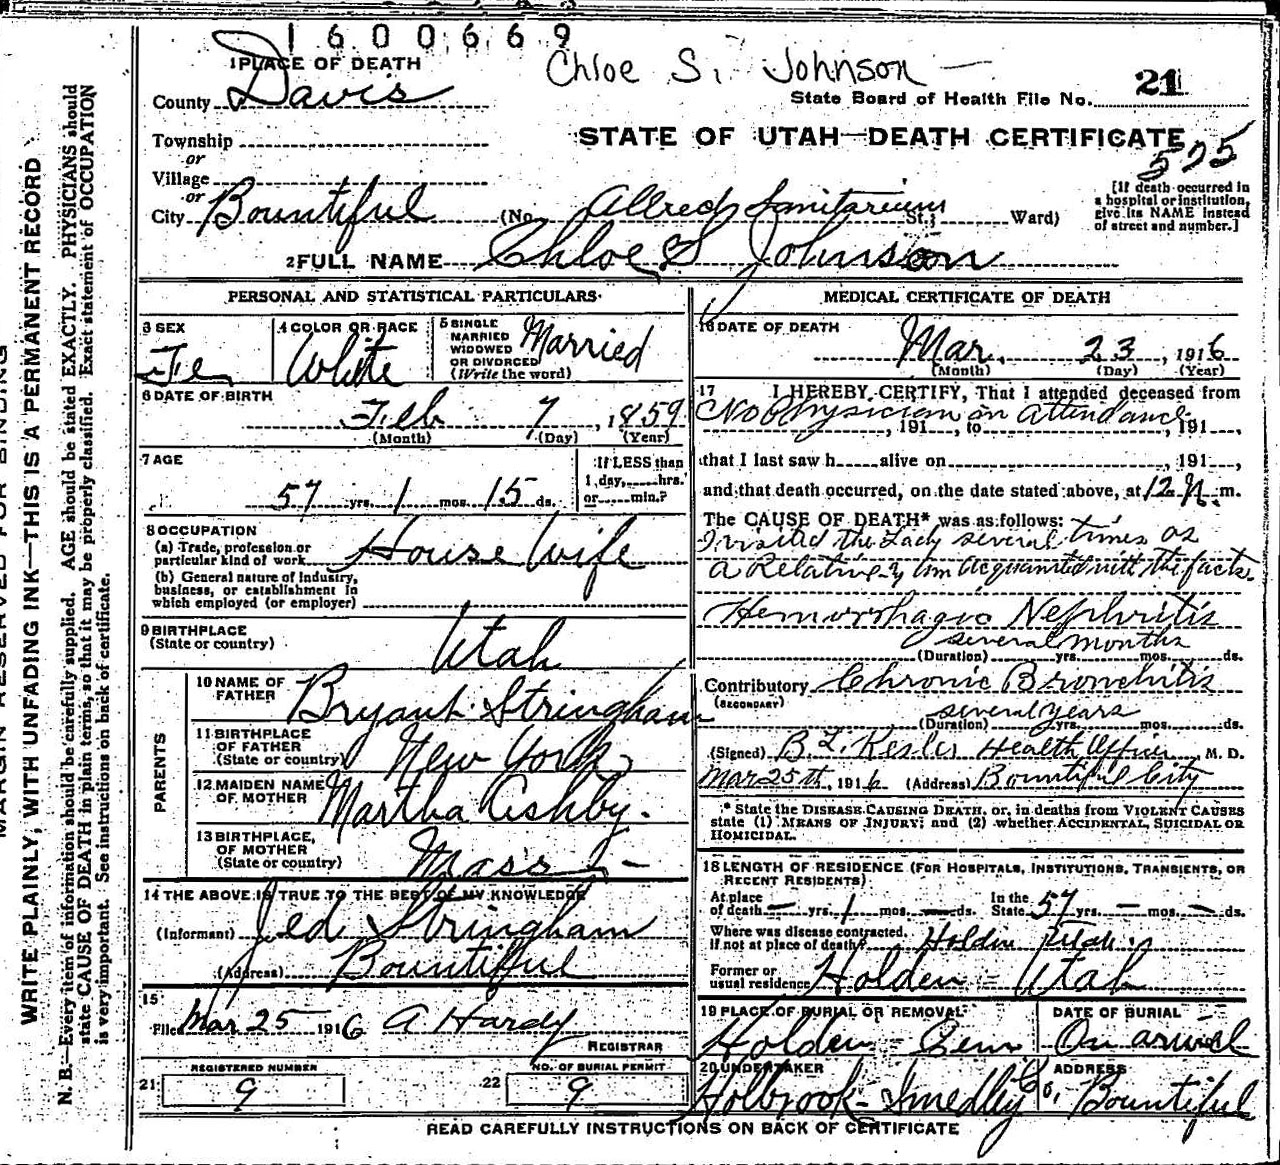 1600669
Chloe S. Johnson —
1 PLACE OF DEATH
County Davis
State Board of Health File No. 21
Township
STATE OF UTAH—DEATH CERTIFICATE
575
or
Village
or
City Bountiful (No. Allred Sanitarium St.; Ward)
[If death occurred in
a hospital or institution,
give its NAME instead
of street and number.]
2 FULL NAME Chloe S Johnson
PERSONAL AND STATISTICAL PARTICULARS
3 SEX
Fe
4 COLOR OR RACE
White
5 SINGLE
MARRIED
WIDOWED
OR DIVORCED
(Write the word)
Married
6 DATE OF BIRTH
Feb 7, 1859
(Month) (Day) (Year)
7 AGE
57 yrs. 1 mos. 15 ds.
If LESS than
1 day, hrs.
or min.?
8 OCCUPATION
(a) Trade, profession or
particular kind of work House Wife
(b) General nature of industry,
business, or establishment in
which employed (or employer)
9 BIRTHPLACE
(State or country) Utah
PARENTS
10 NAME OF
FATHER Bryant Stringham
11 BIRTHPLACE
OF FATHER
(State or country) New York
12 MAIDEN NAME
OF MOTHER Martha Ashby.
13 BIRTHPLACE,
OF MOTHER
(State or country) Mass —
14 THE ABOVE IS TRUE TO THE BEST OF MY KNOWLEDGE
(Informant) Jed Stringham
(Address) Bountiful
15
Filed Mar 25 1916 A Hardy
REGISTRAR
REGISTERED NUMBER
21 9
NO. OF BURIAL PERMIT
22 9
MEDICAL CERTIFICATE OF DEATH
16 DATE OF DEATH
Mar. 23, 1916
(Month) (Day) (Year)
17 I HEREBY CERTIFY, That I attended deceased from
No Physician in attendance
, 191 , to , 191 ,
that I last saw h alive on , 191 ,
and that death occurred, on the date stated above, at 12 N. m.
The CAUSE OF DEATH* was as follows:
I visited the Lady several times as
a Relative & am Acquainted with the facts.
Hemorrhagic Nephritis
several months
(Duration) yrs. mos. ds.
Contributory Chronic Bronchitis
(SECONDARY)
several years
(Duration) yrs. mos. ds.
(Signed) B. L. Kesler Health Officer M. D.
Mar 25th, 1916 (Address) Bountiful City
* State the DISEASE CAUSING DEATH, or, in deaths from VIOLENT CAUSES
state (1) MEANS OF INJURY; and (2) whether ACCIDENTAL, SUICIDAL OR
HOMICIDAL.
18 LENGTH OF RESIDENCE (FOR HOSPITALS, INSTITUTIONS, TRANSIENTS, OR
RECENT RESIDENTS)
At place
of death — yrs. 1 mos. — ds.
In the
State 57 yrs. — mos. — ds.
Where was disease contracted,
if not at place of death? Holden Utah
Former or
usual residence Holden = Utah
19 PLACE OF BURIAL OR REMOVAL
Holden = Cem
DATE OF BURIAL
On arrivel
20 UNDERTAKER
Holbrook-Smedley Co.
ADDRESS
Bountiful
READ CAREFULLY INSTRUCTIONS ON BACK OF CERTIFICATE
MARGIN RESERVED FOR BINDING
WRITE PLAINLY, WITH UNFADING INK—THIS IS A PERMANENT RECORD
N. B.—Every item of information should be carefully supplied. AGE should be stated EXACTLY. PHYSICIANS should
state CAUSE OF DEATH in plain terms, so that it may be properly classified. Exact statement of OCCUPATION
is very important. See instructions on back of certificate.